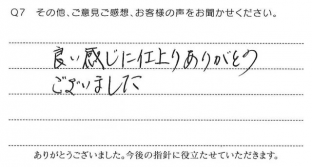 Q7 その他、ご意見ご感想、お客様の声をお聞かせください。
良い感じに仕上りありがとう
ございました
ありがとうございました。今後の指針に役立たせていただきます。